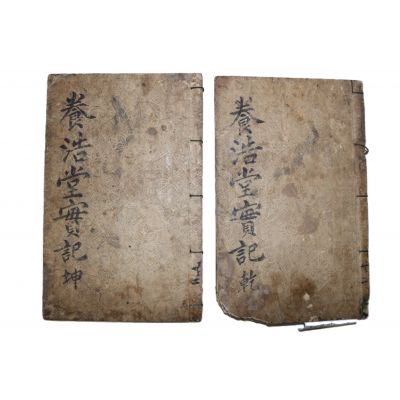 養浩堂實記 乾
養浩堂實記 坤